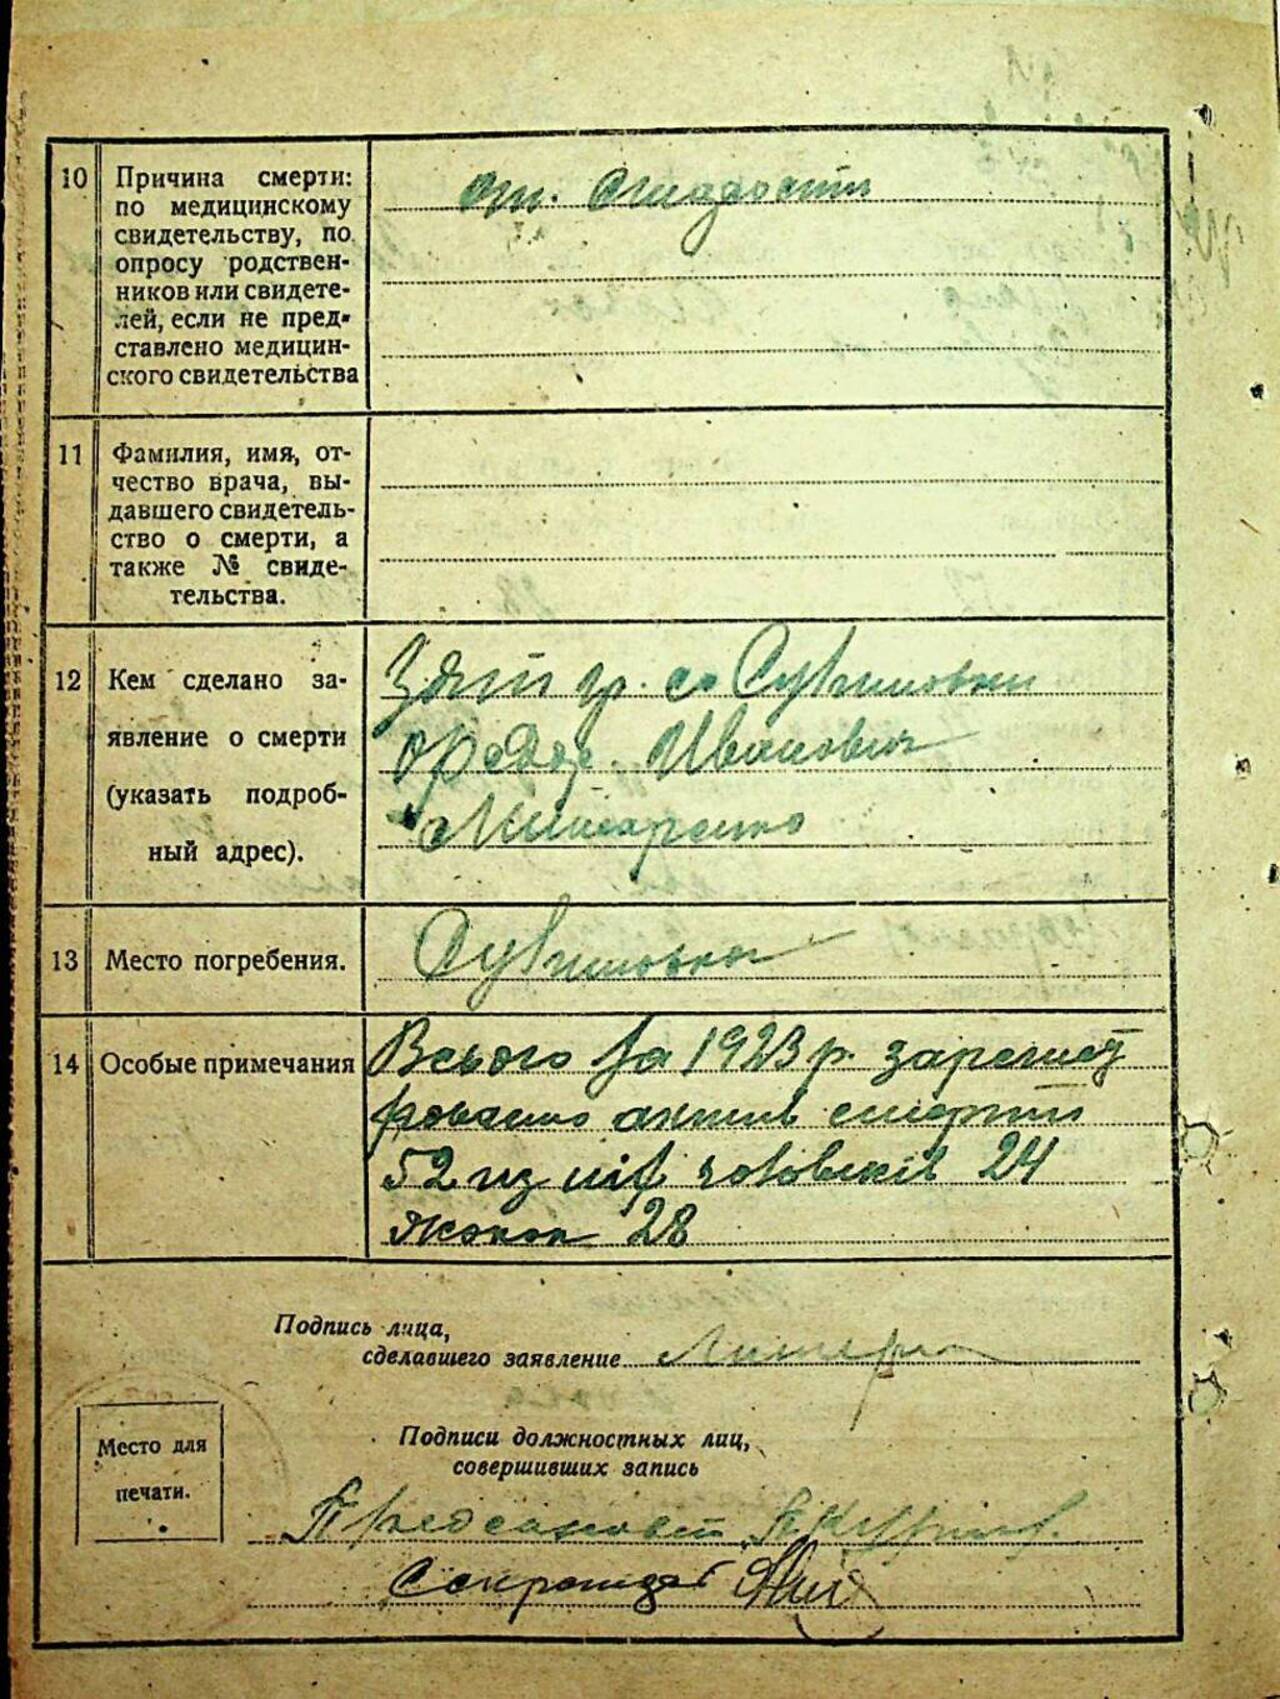 10 Причина смерти:
по медицинскому
свидетельству, по
опросу родствен-
ников или свидете-
лей, если не пред-
ставлено медицин-
ского свидетельства
от старости
11 Фамилия, имя, от-
чество врача, вы-
давшего свидетель-
ство о смерти, а
также № свиде-
тельства.
12 Кем сделано за-
явление о смерти
(указать подроб-
ный адрес).
Зять гр. с.
Иванович
13 Место погребения.
14 Особые примечания
Всього за 1923 р. зарегист
ровано актив смерти
52 из них чоловиків 24
жінок 28
Подпись лица,
сделавшего заявление
Место для
печати.
Подписи должностных лиц,
совершивших запись
Секретарь